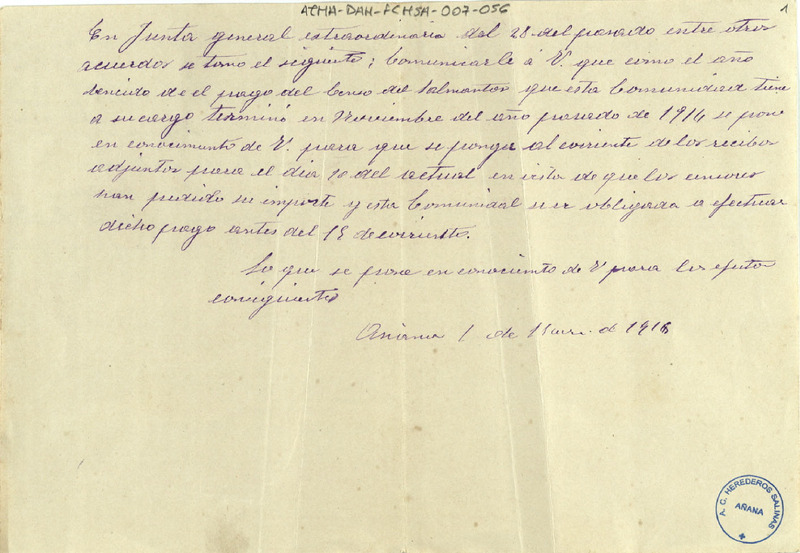 ACMA-DAH-FCHSA-007-056
1
En Junta general extraordinaria del 28 del pasado entre otros
acuerdos se tomo el siguiente; Comunicarle á V. que como el año
vencido de el pago del Censo del Salmantor que esta Comunidad tiene
a su cargo terminó en Noviembre del año pasado de 1914 se pone
en conocimiento de V. para que se ponga al corriente de los recibos
adjuntos para el dia 20 del actual en vista de que los
han pedido su importe y esta Comunidad se ve obligada a efectuar
dicho pago antes del 15 de corriente.
Lo que se pone en conociento de V para los efectos
consiguientes
Añana 1 de de 1916
A. C. HEREDEROS SALINAS
AÑANA